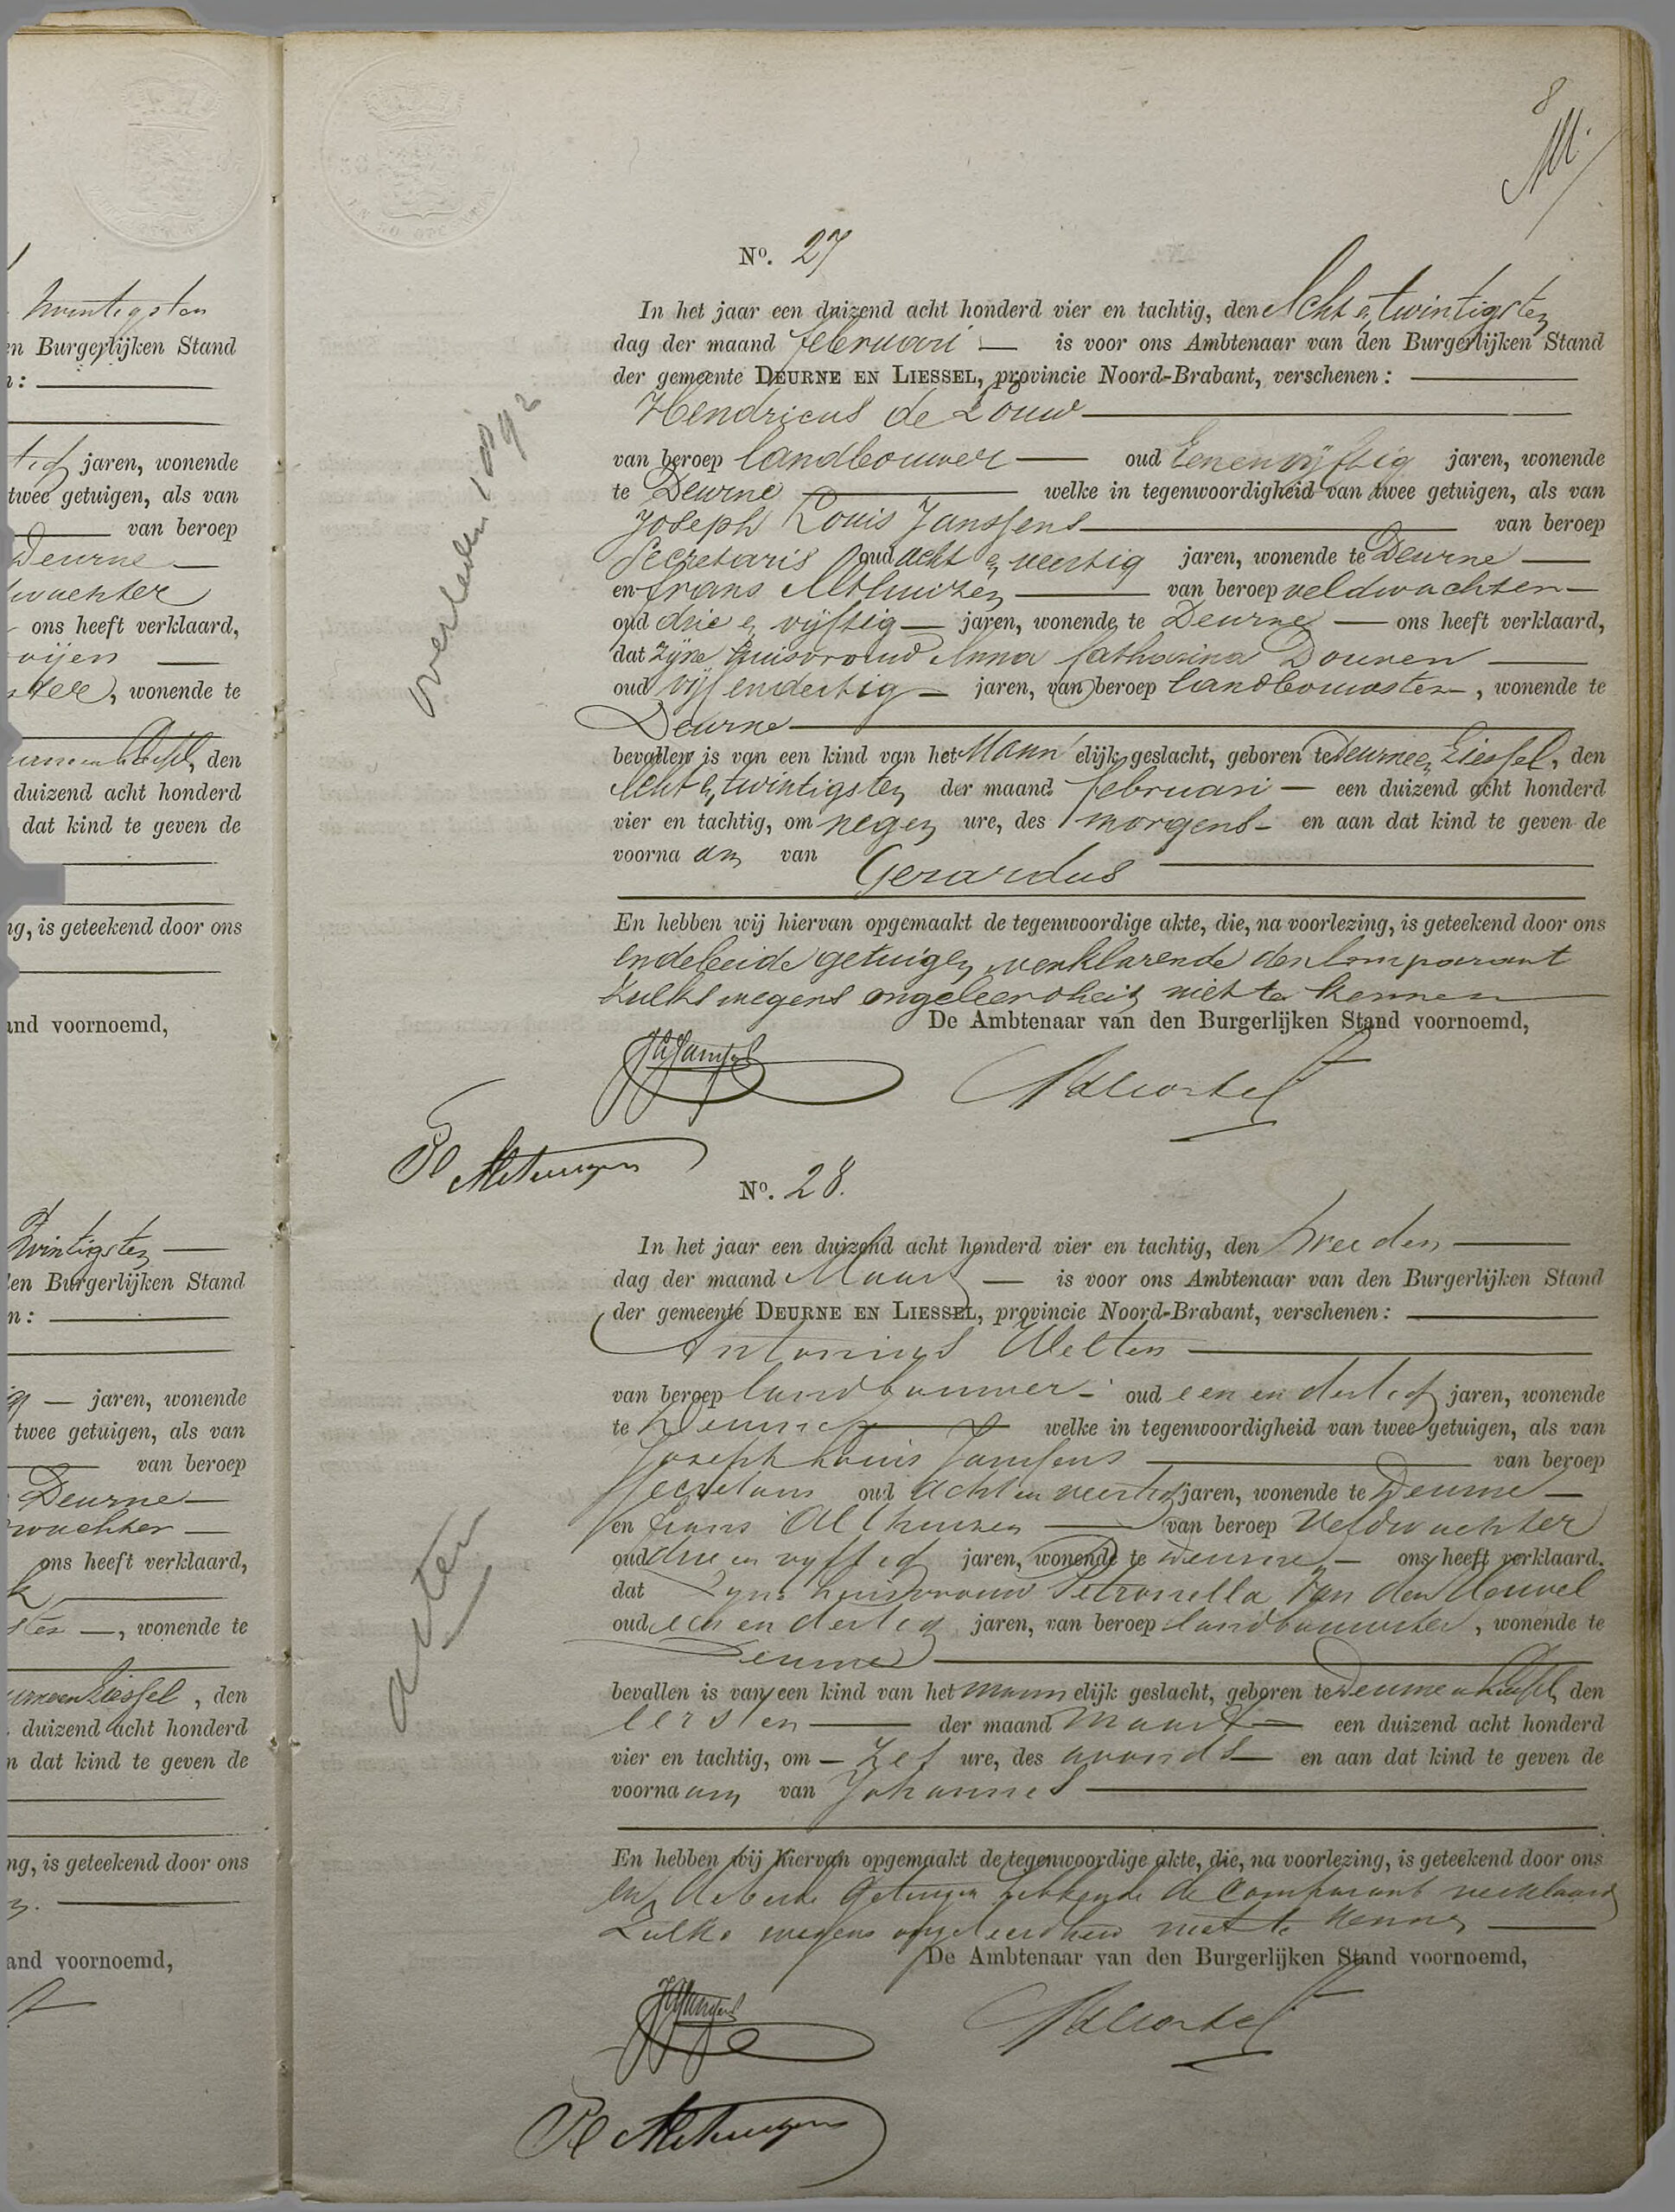 twintigsten
en Burgerlijken Stand
n:
jaren, wonende
twee getuigen, als van
van beroep
Deurne
wachter
ons heeft verklaard,
wonende te
den
duizend acht honderd
dat kind te geven de
ng, is geteekend door ons
and voornoemd,
Twintigsten
den Burgerlijken Stand
n:
jaren, wonende
twee getuigen, als van
van beroep
Deurne
wachter
ons heeft verklaard,
wonende te
Liessel, den
duizend acht honderd
n dat kind te geven de
ng, is geteekend door ons
and voornoemd,
8
No. 27
In het jaar een duizend acht honderd vier en tachtig, den Acht en twintigsten
dag der maand februari is voor ons Ambtenaar van den Burgerlijken Stand
der gemeente DEURNE EN LIESSEL, provincie Noord-Brabant, verschenen:
Hendricus de Louw
van beroep landbouwer oud Eenenvijftig jaren, wonende
te Deurne welke in tegenwoordigheid van twee getuigen, als van
Joseph Louis Janssens van beroep
Secretaris oud acht en veertig jaren, wonende te Deurne
en frans Althuizen van beroep veldwachter
oud drie en vijftig jaren, wonende te Deurne ons heeft verklaard,
dat zijne huisvrouw Anna Catharina Douven
oud vijf endertig jaren, van beroep landbouwster, wonende te
Deurne
bevallen is van een kind van het Mannelijk geslacht, geboren te Deurne en Liessel, den
Acht en twintigsten der maand februari een duizend acht honderd
vier en tachtig, om negen ure, des morgens en aan dat kind te geven de
voornaam van Gerardus
En hebben wij hiervan opgemaakt de tegenwoordige akte, die, na voorlezing, is geteekend door ons
en de beide getuigen verklarende den Comparant
zulks wegens ongeleerdheid niet te kennen
De Ambtenaar van den Burgerlijken Stand voornoemd,
overleden 1892
No. 28.
In het jaar een duizend acht honderd vier en tachtig, den tweeden
dag der maand Maart is voor ons Ambtenaar van den Burgerlijken Stand
der gemeente DEURNE EN LIESSEL, provincie Noord-Brabant, verschenen:
Antonius Welten
van beroep landbouwer oud een en dertig jaren, wonende
te Deurne welke in tegenwoordigheid van twee getuigen, als van
Joseph Louis Janssens van beroep
Secretaris oud Acht en veertig jaren, wonende te Deurne
en frans Althuizen van beroep Veldwachter
oud drie en vyftig jaren, wonende te Deurne ons heeft verklaard,
dat zyne huisvrouw Petronella van den Heuvel
oud een en dertig jaren, van beroep landbouwster, wonende te
Deurne
bevallen is van een kind van het mannelijk geslacht, geboren te Deurne en Liessel, den
eersten der maand Maart een duizend acht honderd
vier en tachtig, om zes ure, des avonds en aan dat kind te geven de
voornaam van Johannes
En hebben wij hiervan opgemaakt de tegenwoordige akte, die, na voorlezing, is geteekend door ons
en de beide getuigen hebbende de Comparant verklaard
Zulks wegens ongeleerdheid niet te kennen
De Ambtenaar van den Burgerlijken Stand voornoemd,